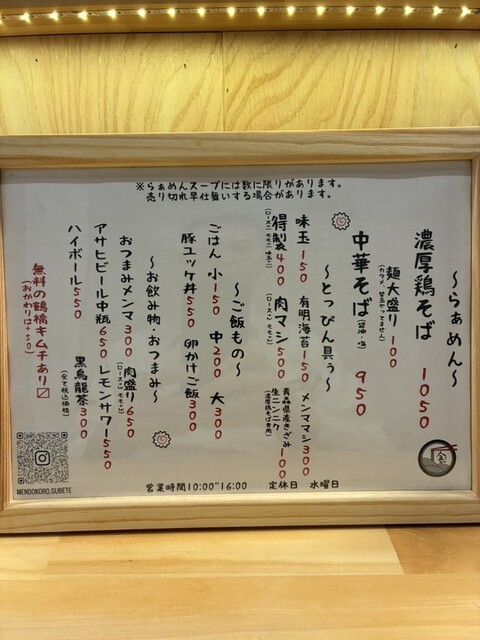 ※らぁめんスープには数に限りがあります。
売り切れ早仕舞いする場合があります。
〜らぁめん〜
濃厚鶏そば 1050
麺大盛り 100
中華そば(醤油・塩) 950
〜とっぴん具ぅ〜
味玉 150 有明海苔 150 メンママシ 300
得製 400 肉マシ 500 青森県産きざみ生ニンニク 100
(ロース二 モモ二 味玉二) (ロース二 モモ二) (濃厚鶏そば専用)
〜ご飯もの〜
ごはん 小150 中200 大300
豚ユッケ丼 550 卵かけご飯 300
〜お飲み物・おつまみ〜
おつまみメンマ 300 肉盛り 650
アサヒビール中瓶 650 レモンサワー 550
ハイボール 550 黒烏龍茶 300
(全て税込価格)
無料の鶴橋キムチあり〼
(おかわりは+50)
MENDOKORO.SUBETE
営業時間10:00~16:00 定休日 水曜日